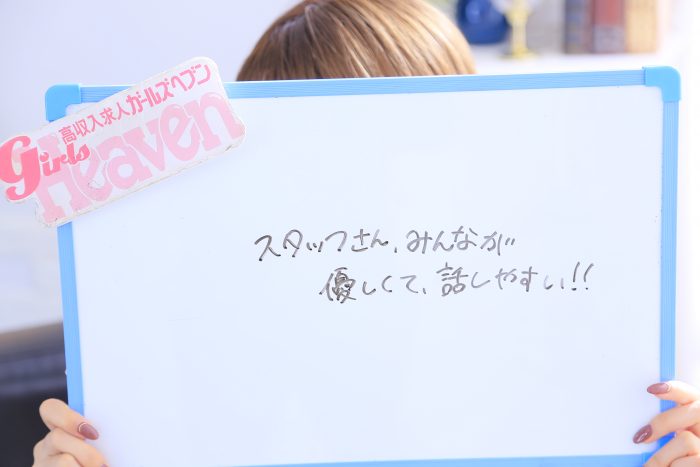 高収入求人ガールズヘブン
Girls
Heaven
スタッフさん、みんなが
優しくて、話しやすい!!